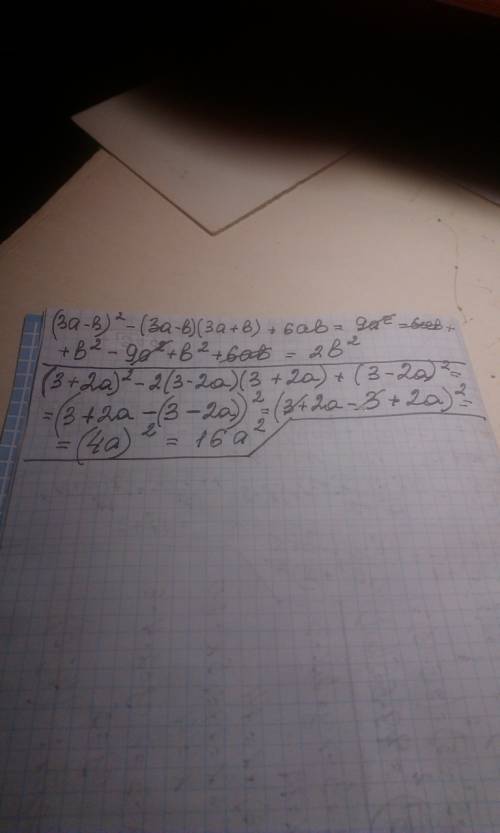 (3a-b)² - (3a-b)(3a+b) + 6ab = 9a² - 6ab +
+ b² - 9a² + b² + 6ab = 2b²
(3+2a)² - 2(3-2a)(3+2a) + (3-2a)² =
= (3+2a-(3-2a))² = (3+2a-3+2a)² =
= (4a)² = 16a²